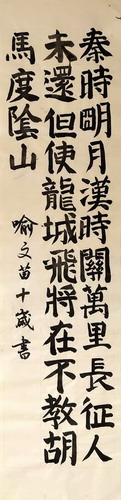 秦時明月漢時關萬里長征人
未還但使龍城飛將在不教胡
馬度陰山
喻文苗十歲書